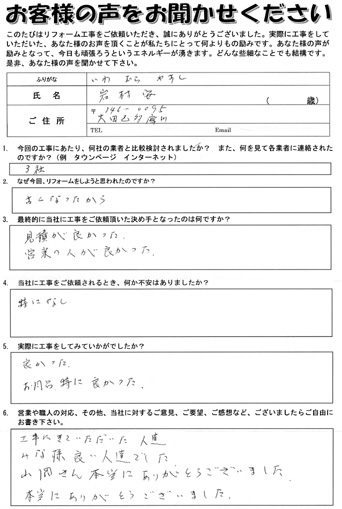 お客様の声をお聞かせください
このたびはリフォーム工事をご依頼いただき、誠にありがとうございました。実際に工事をして
いただいた、あなた様のお声を頂くことが私たちにとって何よりもの励みです。あなた様の声が
励みとなって、今日も頑張ろうというエネルギーが湧きます。どんな些細なことでも結構です。
是非、あなた様の声を聞かせて下さい。
ふりがな いわ むら やすし
氏名 岩村 ( 歳)
ご住所 〒146-0095
大田区多摩川
TEL Email
1. 今回の工事にあたり、何社の業者と比較検討されましたか? また、何を見て各業者に連絡された
のですか?(例 タウンページ インターネット)
3社
2. なぜ今回、リフォームをしようと思われたのですか?
古くなったから
3. 最終的に当社に工事をご依頼頂いた決め手となったのは何ですか?
見積が良かった.
営業の人が良かった.
4. 当社に工事をご依頼されるとき、何か不安はありましたか?
特になし
5. 実際に工事をしてみていかがでしたか?
良かった.
お風呂特に良かった.
6. 営業や職人の対応、その他、当社に対するご意見、ご要望、ご感想など、ございましたらご自由に
お書き下さい。
工事にきていただいた人達
みな様良い人達でした
山岡さん本当にありがとうございました.
本当にありがとうございました.